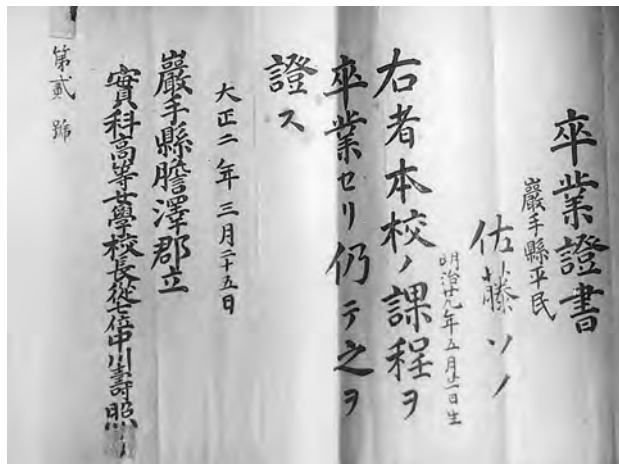 卒業證書
巖手縣平民
佐藤ソノ
明治廿九年五月廿一日生
右者本校ノ課程ヲ
卒業セリ仍テ之ヲ
證ス
大正二年三月二十五日
巖手縣膽澤郡立
實科高等女學校長從七位中川壽照
第貳號